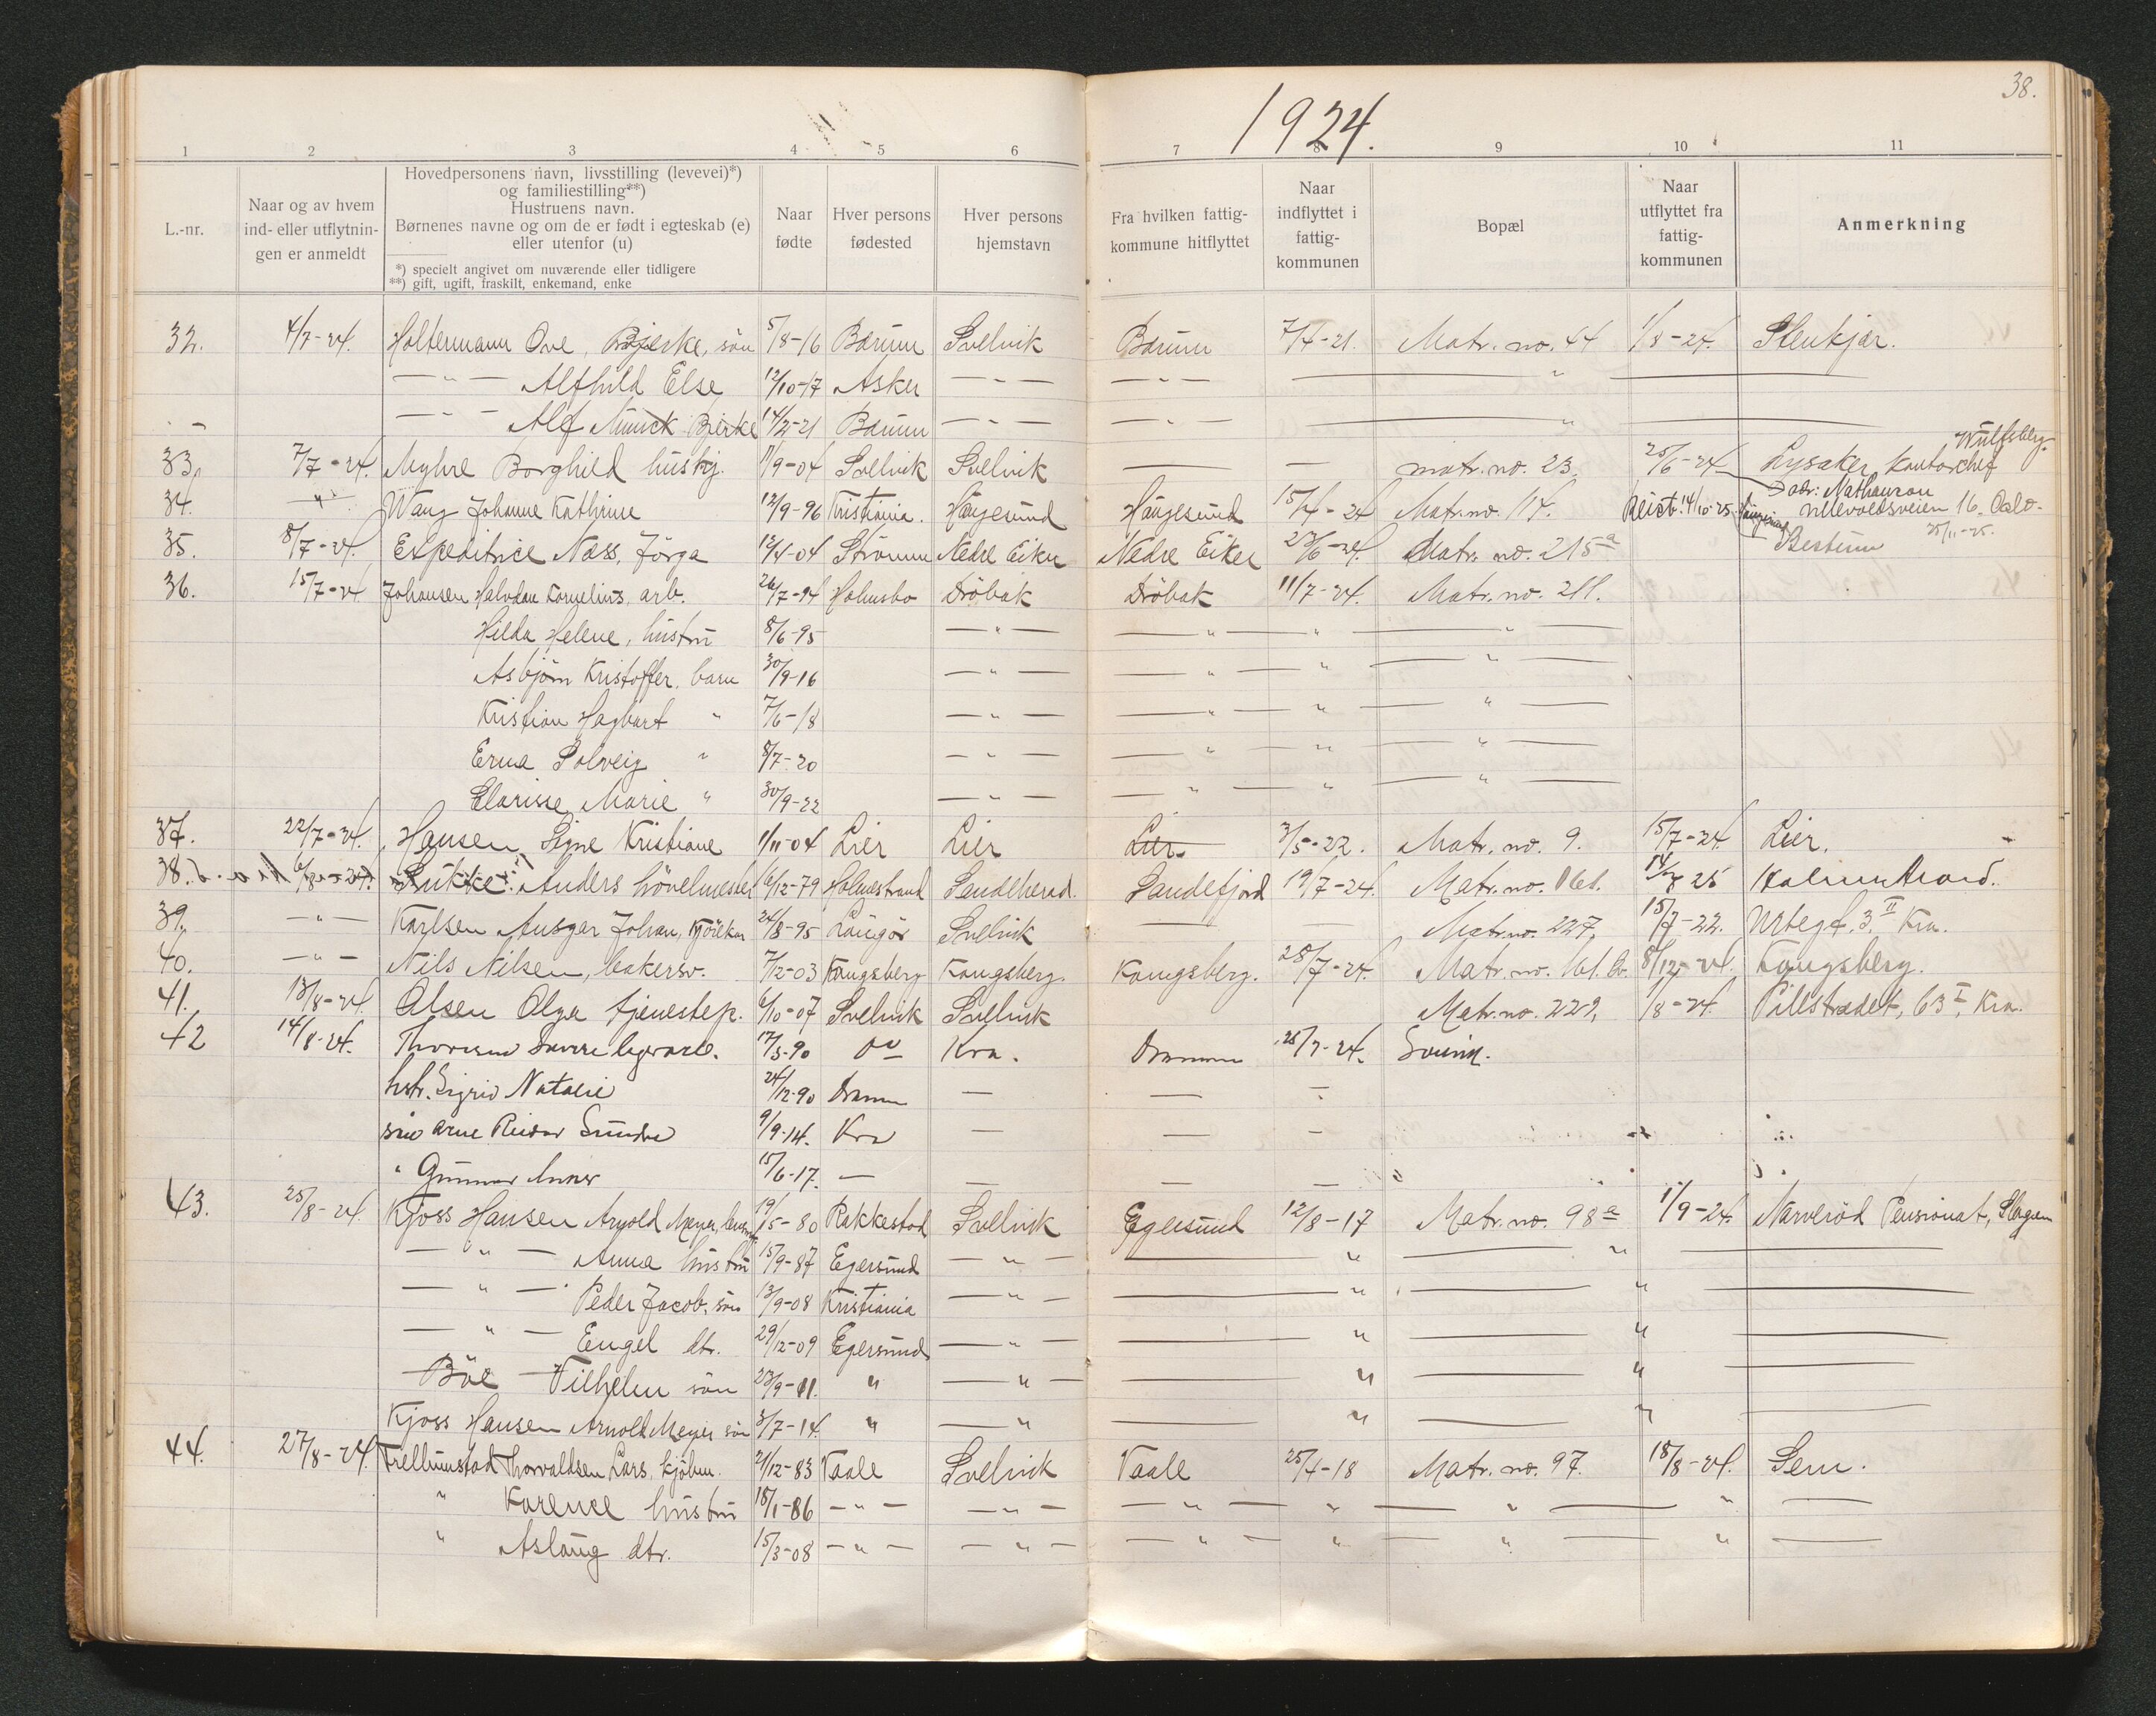 38.
1924.
1 2 3 4 5 6 7 8 9 10 11
L.-nr.
Naar og av hvem
ind- eller utflytnin-
gen er anmeldt
Hovedpersonens navn, livsstilling (levevei)*)
og familiestilling**)
Hustruens navn.
Børnenes navne og om de er født i egteskab (e)
eller utenfor (u)
*) specielt angivet om nuværende eller tidligere
**) gift, ugift, fraskilt, enkemand, enke
Naar
fødte
Hver persons
fødested
Hver persons
hjemstavn
Fra hvilken fattig-
kommune hitflyttet
Naar
indflyttet i
fattig-
kommunen
Bopæl
Naar
utflyttet fra
fattig-
kommunen
Anmerkning
32. 4/7-24. Holtermann Ove, Bjerke, sön 5/8-16 Bærum Svelvik Bærum 7/4-21. Matr. no. 44 1/8-24. Stenkjær.
— " — Alfhild Else 12/10-17 Asker — " — — " — "
— " — Alf Munck Bjerke 14/2-21 Bærum — " — — " — "
33. 7/7-24. Myhre Borghild huslj. 11/9-04 Svelvik Svelvik — — matr. no. 23. 25/6-24 Lysaker, kontorchef Wulfsberg.
34. — " — Wang Johanne Kathrine 12/9-96 Kristiania. Haugesund Haugesund 15/4-24 Matr. no. 114. 14/10-25 Haugesund
Adr: Nathanson
Ullevoldsveien 16. Oslo.
25/11-25.
35. 8/7-24. Expeditrice Næss, Jörga 12/4-04 Strömm Nedre Eiker Nedre Eiker 23/6-24. Matr. no. 215a Bestum
36. 15/7-24 Johansen Halvdan Kornelius, arb. 26/7-94 Holmsbo Dröbak Dröbak 11/7-24. Matr. no. 211.
Hilda Helene, hustru 8/6-95 — " — — " — " — " —
Asbjörn Kristoffer, barn 30/9-16 — " — — " — " — " —
Kristian Hagbart " 7/6-18 — " — — " — " — " —
Erna Solveig " 8/7-20 — " — — " — " — " —
Clarisse Marie " 30/9-22 — " — — " — " — " —
37. 22/7-24. Hansen Signe Kristiane 1/11-04 Lier Lier Lier 3/5-22. Matr. no. 9. 15/7-24 Lier.
38. 6/8-24. Lükke Anders hövelmester 6/12-79 Holmestrand Sandeherad. Sandefjord 19/7-24. Matr. no. 161. 25 Holmestrand.
39. — " — Karlsen Ansgar Johan, 24/8-95 Langör Svelvik — — Matr. no. 227, 15/7-22. Urtegt. 3 II Kra.
40. — " — Nils Nilsen, bakersv. 7/12-03 Kongsberg Kongsberg. Kongsberg. 28/7-24. Matr. no. 161. b. 8/12-24. Kongsberg.
41. 13/8-24. Olsen Olga tjenestep. 6/10-07 Svelvik Svelvik Matr. no. 229, /8-24. Pillstrædet, 63 I, Kra.
42 14/8-24. Thoresen Sverre 17/3-90 Do Kra. Drammen 25/7-24. Svelvik.
hstr. Sigrid Natalie 24/12-90 Dramm — — —
sön Arne Reidar Sundre 9/9-14. Kra — — —
" Gunnar 15/6-17. — — — —
43. 25/8-24. Kjoss Hansen Arnold Meyer, 19/5-80 Rakkestad Svelvik Egersund 12/8-17 Matr. no. 98a 1/9-24. Narveröd Pensionat, Slagen
— " — Anna hustru 15/9-87 Egersund — " — — " — "
— " — Peder Jacob, sön 13/9-08 Kristiania — " — — " — "
— " — Engel dtr. 29/12-09 Egersund — " — — " — "
Böe — Vilhelm sön 23/9-11. " — " — — " — "
Kjoss Hansen Arnold Meyer sön 3/7-14. " — " — " — "
44. 27/8-24. Trellumstad Thorvaldsen Lars, kjöbm. 21/12-83 Vaale Svelvik Vaale 25/4-18 Matr. no. 97. 18/8-24. Sem.
" Karence hustru 18/1-86 — " — — " — — " — " — " — " —
" Aslaug dtr. 15/3-08 — " — — " — — " — " — " — " —